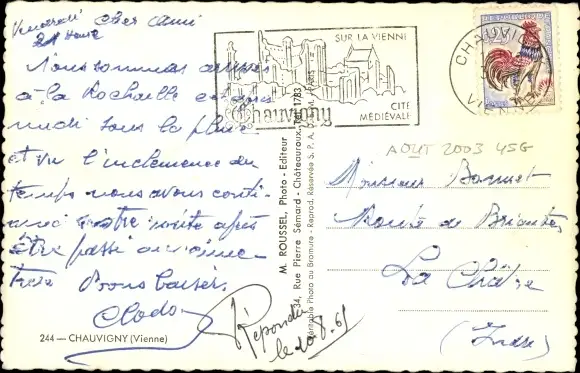 Vendredi Cher Ami
21 heure
Nous sommes arrivés
à la Rochelle
midi sous la pluie
et vu l'inclémence du
temps nous avons conti-
nué notre route après
être passé au cime-
tière Bons baisers
Clodo
244 — CHAUVIGNY (Vienne)
Répondu
le 10.8.65
M. ROUSSEL, Photo - Editeur
34, Rue Pierre Sémard - Châteauroux, Tél. 1783
Véritable Photo au Bromure - Reprod. Réservée S. P. A. D. E. M. PARIS
SUR LA VIENNE
Chauvigny
CITÉ
MÉDIÉVALE
CHAUVIGNY
VIENNE
AOUT 2003 45G
Monsieur
Route de Briantes
La Châtre
(Indre)